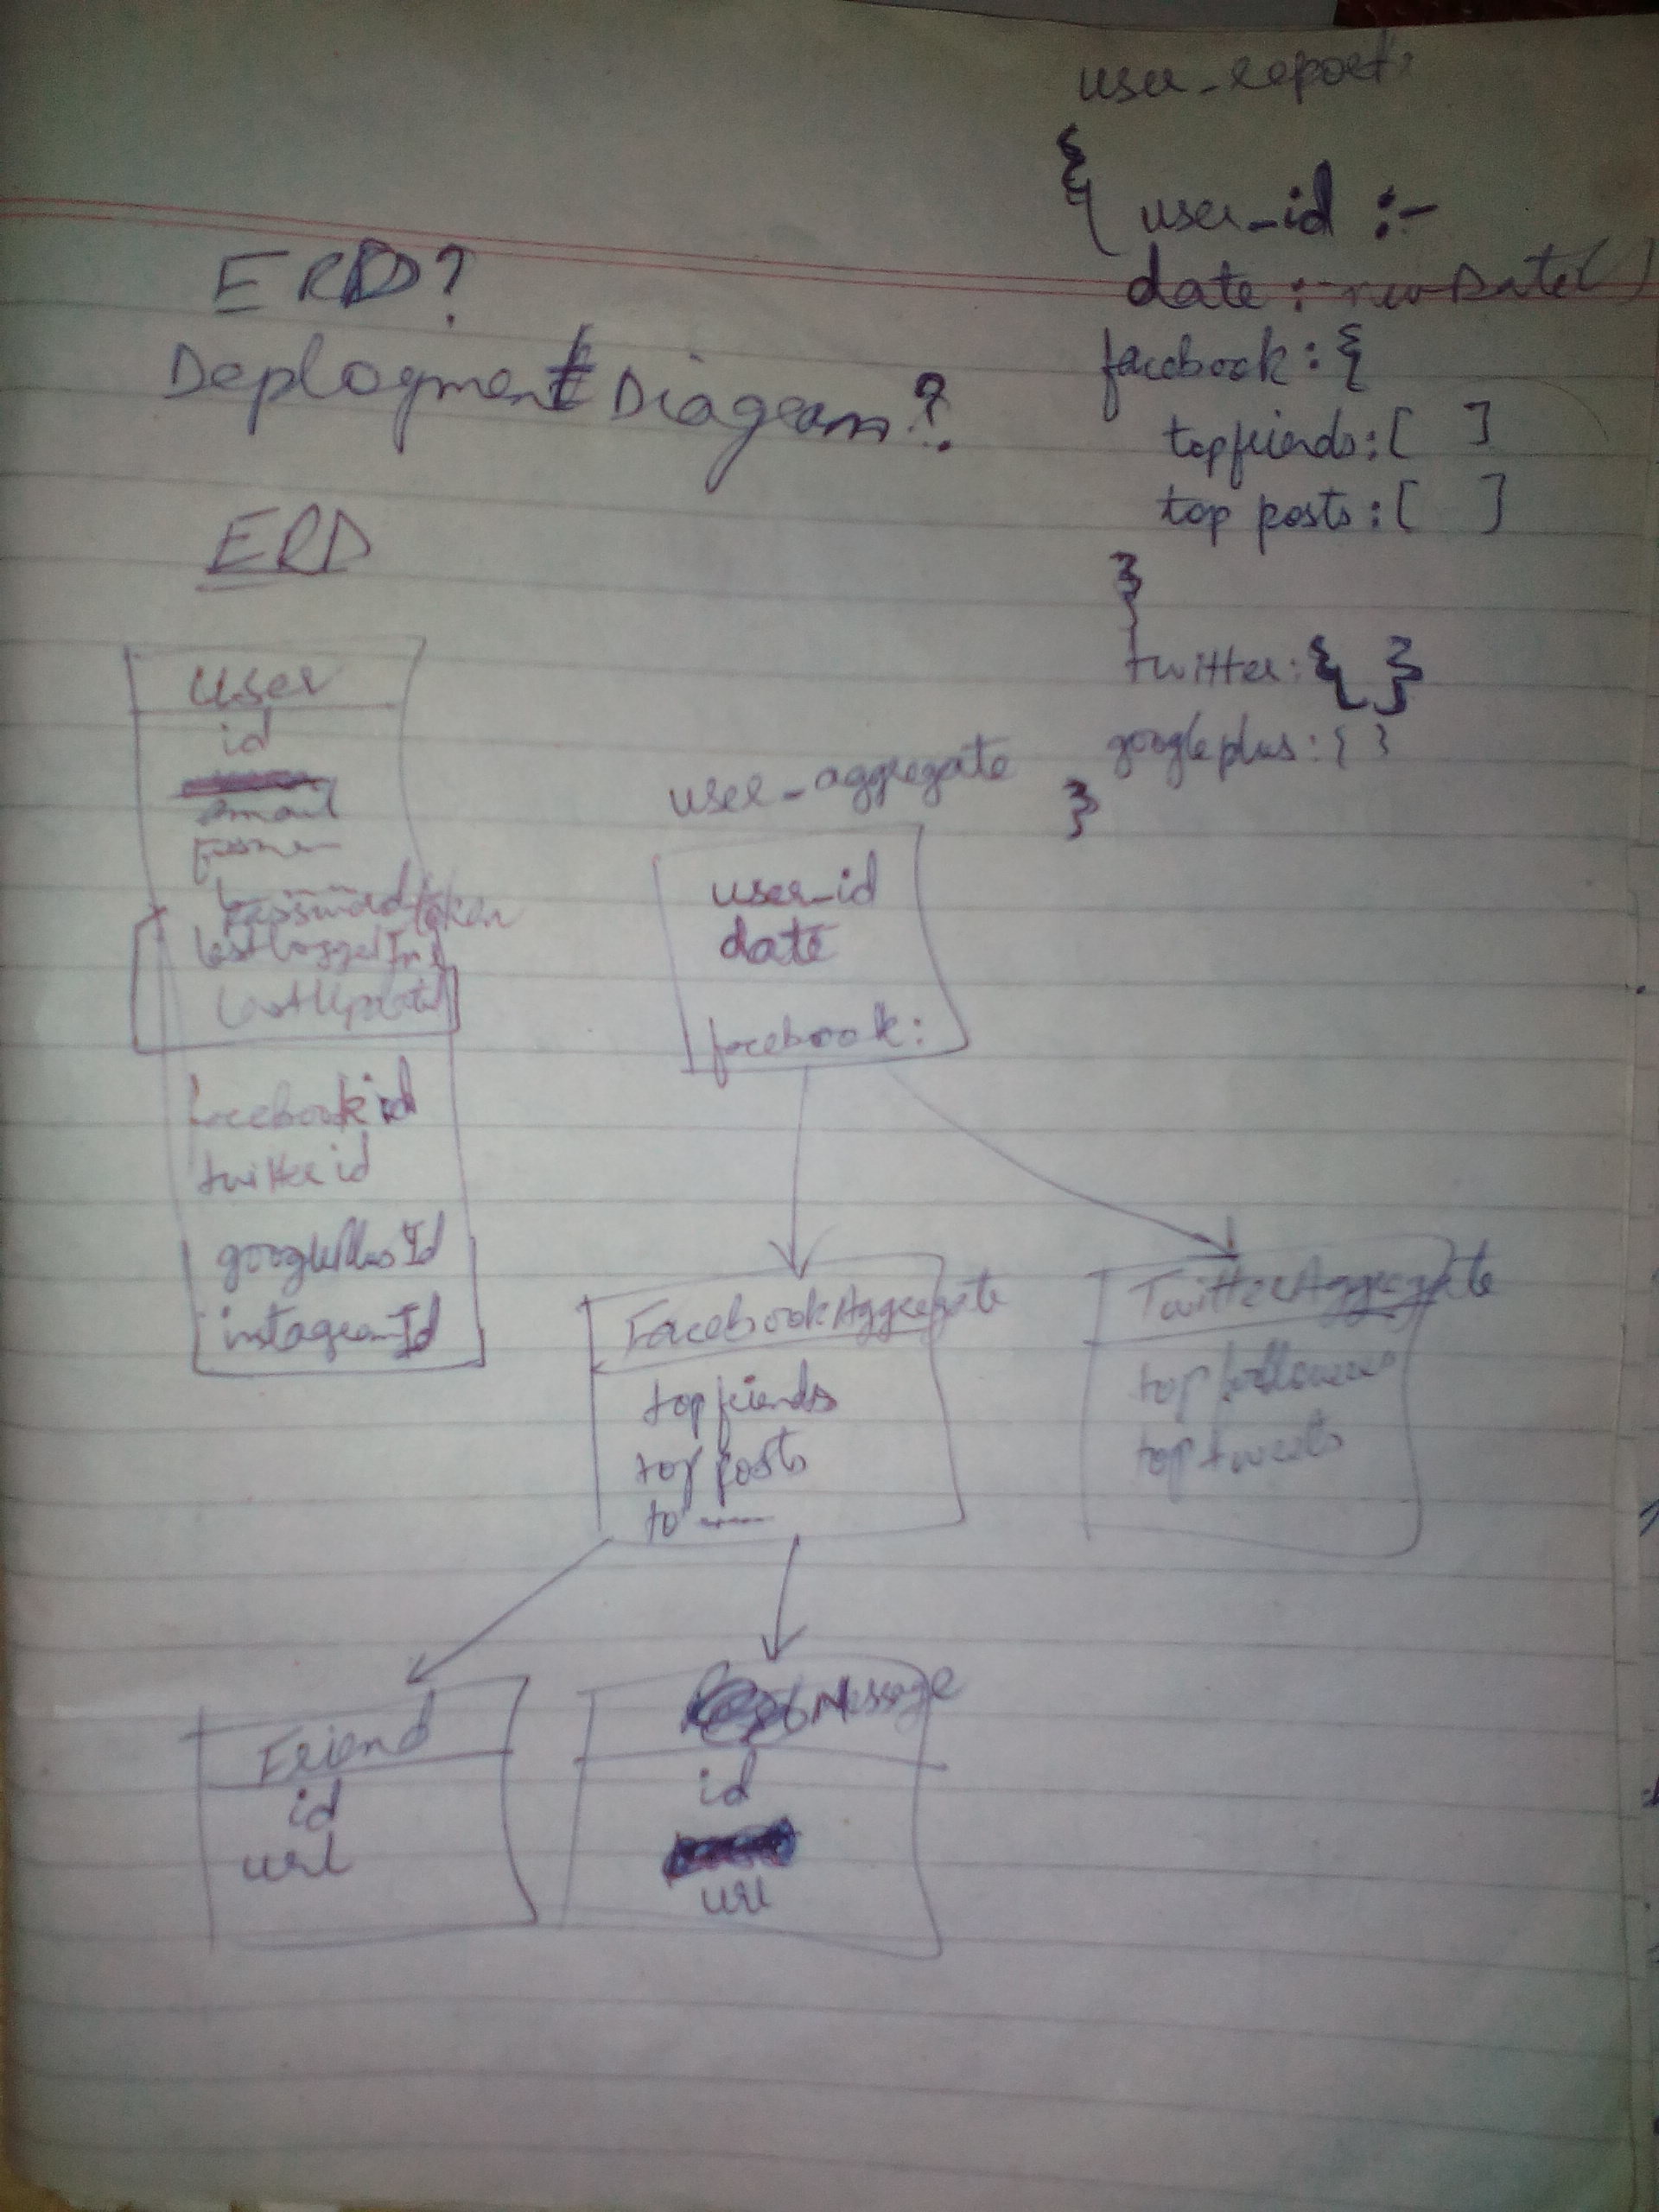 user_report:
{
user_id :-
date :- new Date()
facebook : {
topfriends : [ ]
top posts : [ ]
}
twitter : { }
googleplus : { }
}
ERD?
Deployment Diagram?
ERD
User
id
email
password/token
lastLoggedIn
lastUpdated
facebook id
twitter id
googlePlusId
instagramId
user_aggregate
user_id
date
facebook :
FacebookAggregate
top friends
top posts
to
TwitterAggregate
top followers
top tweets
Friend
id
url
Message
id
url